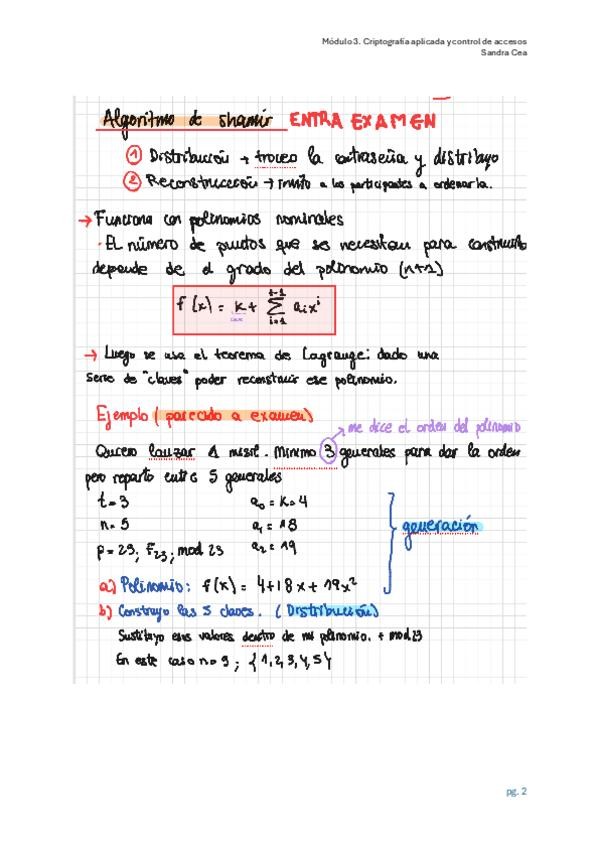 Módulo 3. Criptografía aplicada y control de accesos
Sandra Cea
Algoritmo de shamir ENTRA EXAMEN
① Distribución → troceo la contraseña y distribuyo
② Reconstrucción → invito a los participantes a ordenarla.
→ Funciona con polinomios nominales
· El número de puntos que se necesitan para construirlo
depende de el grado del polinomio (n+1)
f(x) = k + Σ_{i=1}^{t-1} aᵢxⁱ
→ Luego se usa el teorema de Lagrange: dado una
serie de "claves" poder reconstruir ese polinomio.
Ejemplo (parecido a examen)
→ me dice el orden del polinomio
Quiero lanzar 1 misil. Mínimo 3 generales para dar la orden
pero reparto entre 5 generales
t=3 a₀ = k = 4
n=5 a₁ = 18
p = 23; F₂₃; mod 23 a₂ = 19
generación
a) Polinomio: f(x) = 4+18x+19x²
b) Construyo las 5 claves. (Distribución)
Sustituyo esos valores dentro de mi polinomio. + mod 23
En este caso n=5; {1,2,3,4,5}
pg. 2